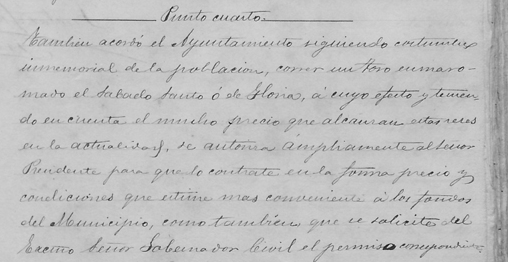 Punto cuarto
Tambien acordó el Ayuntamiento siguiendo costumbre
inmemorial de la poblacion, correr un toro enmaro-
mado el Sabado Santo ó de Gloria, á cuyo efecto y tenien-
do en cuenta el mucho precio que alcanzan estas reses
en la actualidad, se autoriza ámpliamente al Señor
Presidente para que lo contrate en la forma precio y
condiciones que estime mas conveniente á los fondos
del Municipio, como tambien que se solicite del
Excmo Señor Gobernador Civil el permiso correspondien-